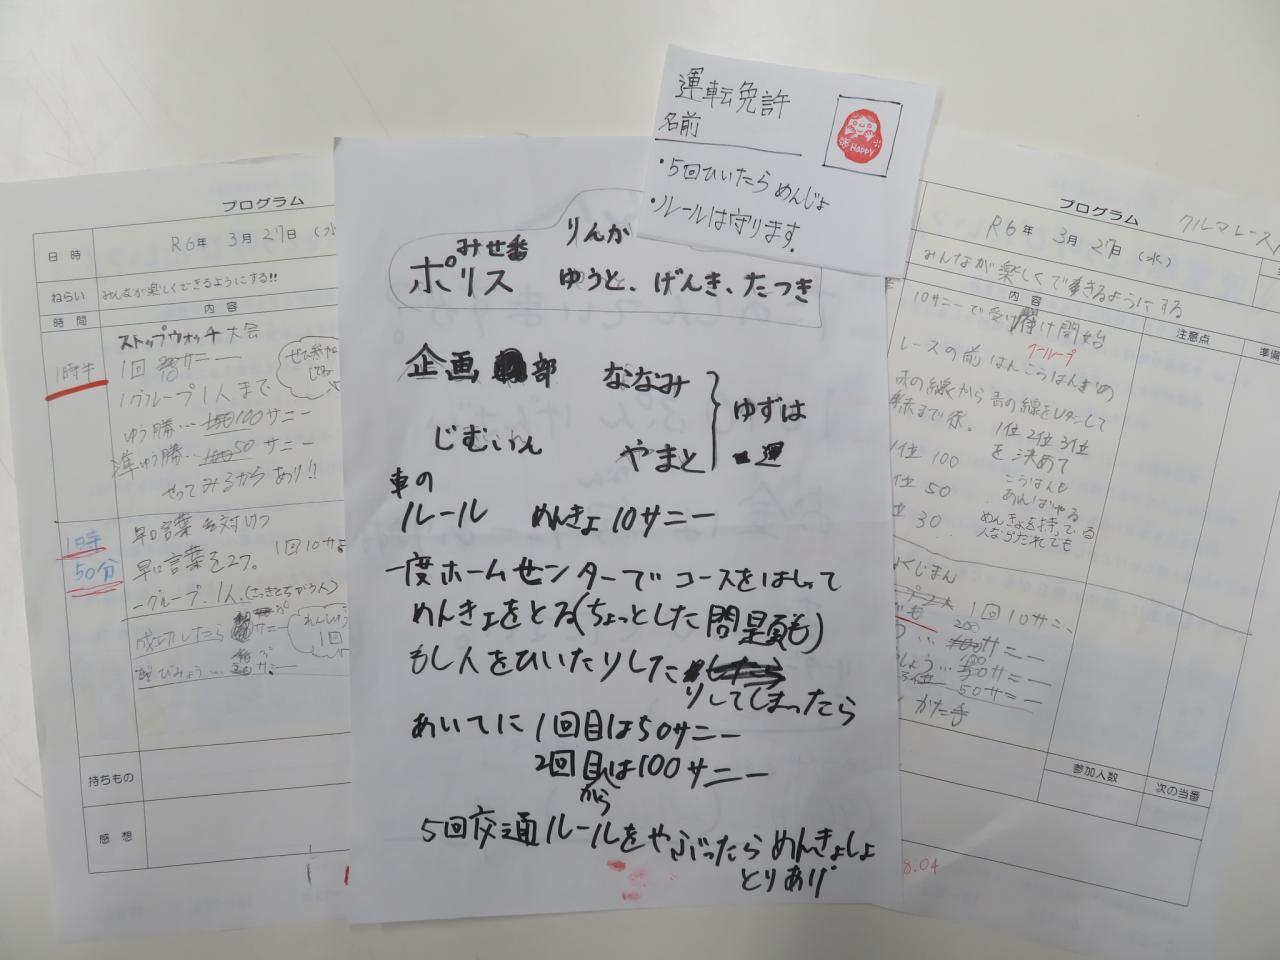 プログラム
日時
R6年 3月27日(水
ねらい
みんなが楽しくできるようにする!!
時間
内容
1時半
ストップウォッチ大会
1回 サニー
1グループ1人まで
ゆう勝… 100サニー
準ゆう勝… 50サニー
やってみるかちあり!!
1時
50分
早口言葉
早口言葉を2つ。
1回10サニー
一グループ.1人.
成功したら サニー
持ちもの
感想
みせ番
りんか
ポリス
ゆうと、げんき、たつき
企画 部
ななみ
ゆずは
じむいん
やまと
運
車の
ルール めんきょ10サニー
一度ホームセンターでコースをはしって
めんきょをとる(ちょっとした問題も)
もし人をひいたりした
りしてしまったら
あいてに1回目は50サニー
2回目は100サニー
から
5回交通ルールをやぶったらめんきょしょ
とりあげ
運転免許
名前
・5回ひいたらめんじょ
・ルールは守ります.
HAPPY
プログラム
クルマレース
R6年 3月27日(水)
みんなが楽しくできるようにする
内容
注意点
10サニーで受け付け開始
グループ
レースの前はんこうはんぎめ
赤の線から青の線をUターンして
赤まで赤。
1位 2位 3位
を決めて
位 100
位 50
位 30
こうはんも
あればやる
めんきょを持っている
人ならだれでも
1回10サニー
200
100
50サニー
かた手
参加人数
次の当番
8.04